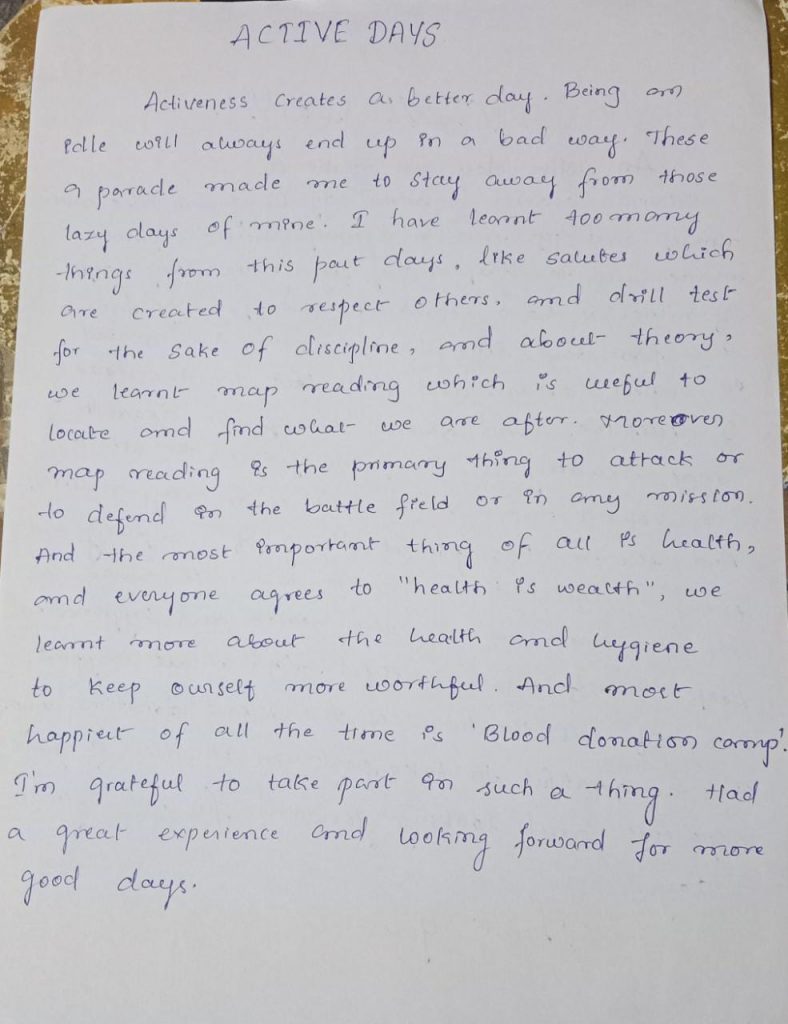 ACTIVE DAYS
Activeness creates a better day. Being an
idle will always end up in a bad way. These
9 parade made me to stay away from those
lazy days of mine. I have learnt too many
things from this past days, like salutes which
are created to respect others, and drill test
for the sake of discipline, and about theory,
we learnt map reading which is useful to
locate and find what we are after. Moreover
map reading is the primary thing to attack or
to defend in the battle field or in any mission.
And the most important thing of all is health,
and everyone agrees to "health is wealth", we
learnt more about the health and hygiene
to keep ourself more worthful. And most
happiest of all the time is 'Blood donation camp'.
I'm grateful to take part in such a thing. Had
a great experience and looking forward for more
good days.